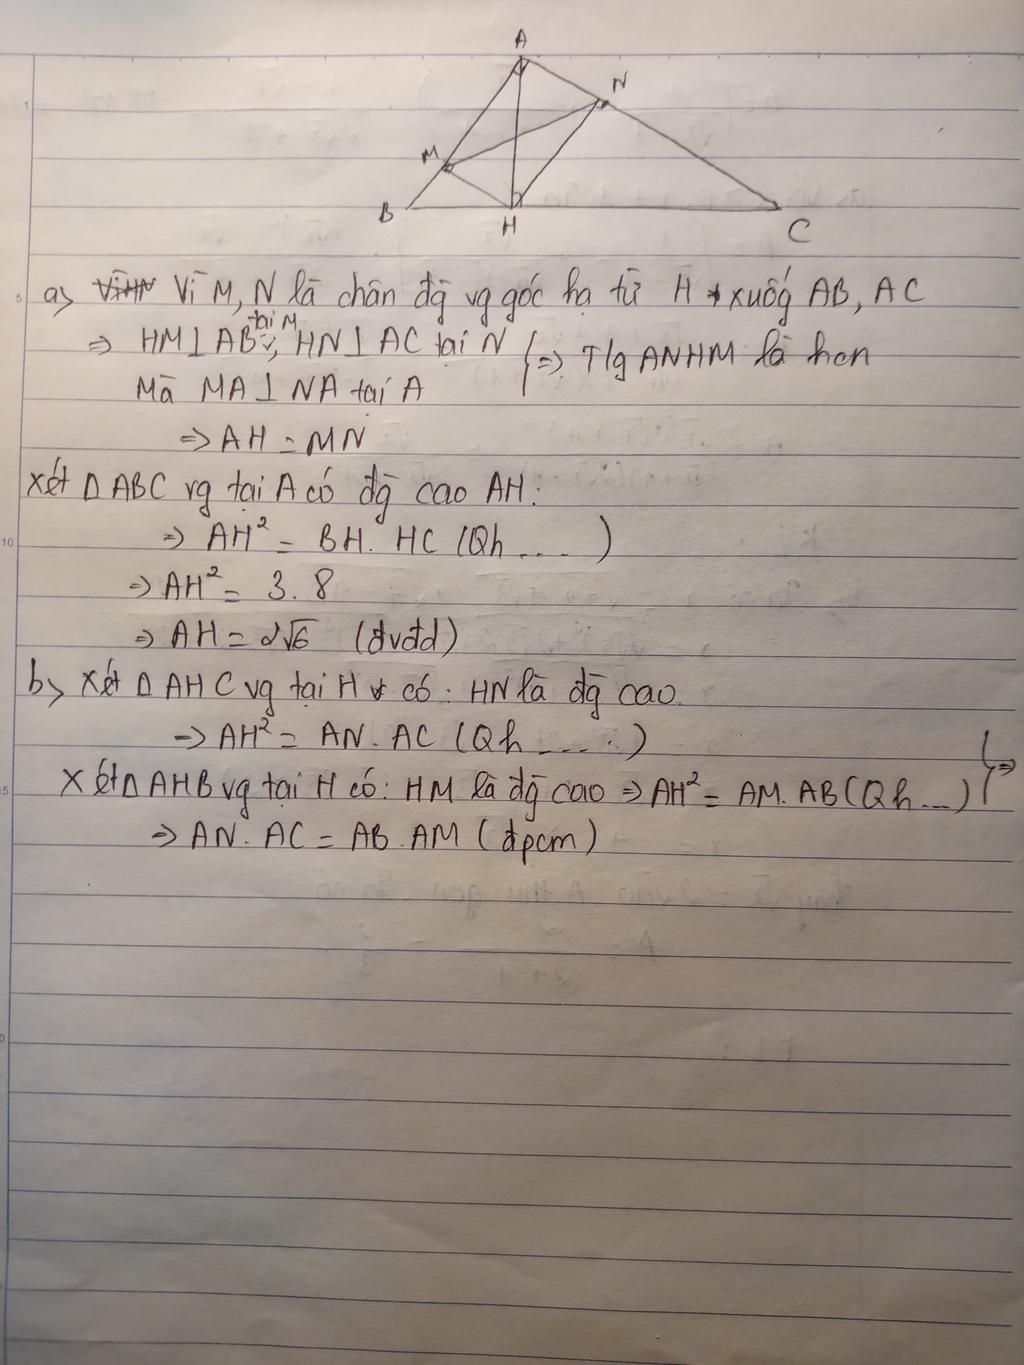 A
N
M
B
H
C
a> Vì M, N là chân đg vg góc hạ từ H xuống AB, AC
tại M
=> HM⊥AB, HN⊥AC tại N
=> T/g ANHM là hcn
Mà MA⊥NA tại A
=> AH = MN
Xét Δ ABC vg tại A có đg cao AH:
=> AH² = BH. HC (Qh .... )
=> AH² = 3. 8
=> AH = 2√6 (đvđd)
b> Xét Δ AHC vg tại H có: HN là đg cao.
=> AH² = AN. AC (Qh .....)
=>
Xét Δ AHB vg tại H có: HM là đg cao => AH² = AM. AB (Qh ...)
=> AN. AC = AB. AM (đpcm)